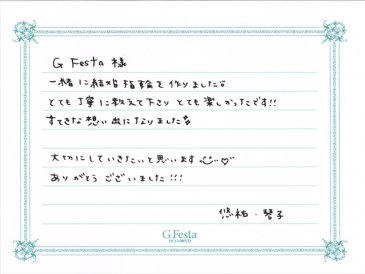 G Festa 様
一緒に結婚指輪を作りました☆
とても丁寧に教えて下さり とても楽しかったです!!
すてきな想い出になりました☆
大切にしていきたいと思います ♡
ありがとうございました!!!
悠祐・琴子
G.Festa
DIAMOND